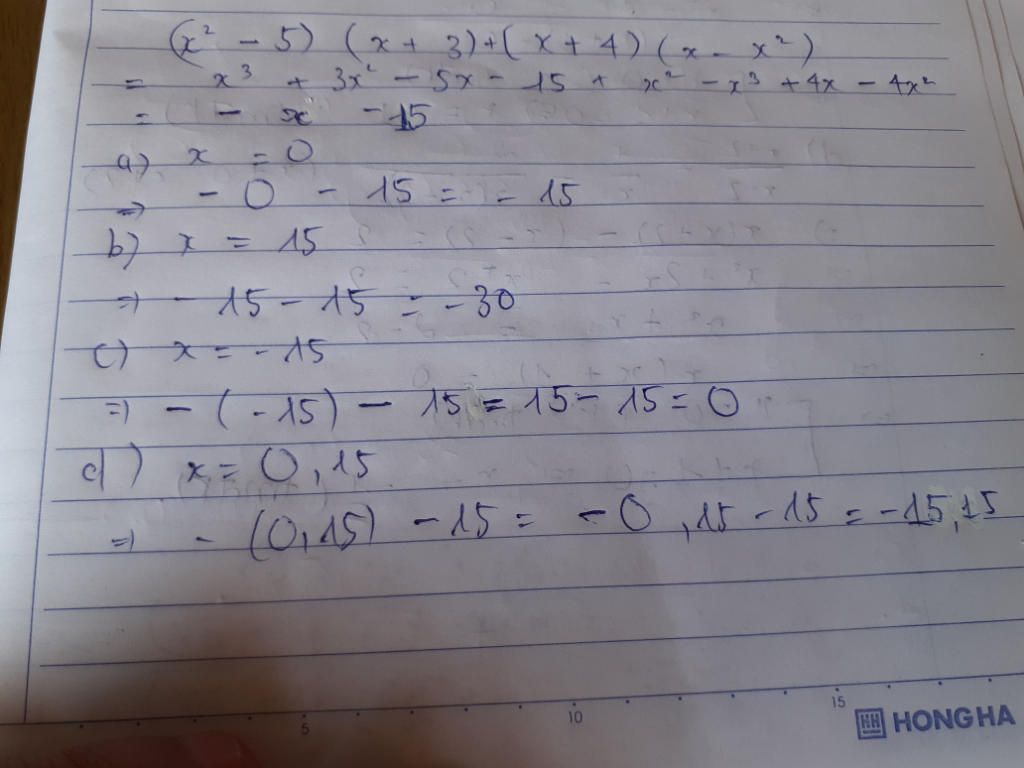 (x² - 5) (x + 3) + (x + 4) (x - x²)
= x³ + 3x² - 5x - 15 + x² - x³ + 4x - 4x²
= - x - 15
a) x = 0
=> - 0 - 15 = - 15
b) x = 15
=> - 15 - 15 = -30
c) x = - 15
=> - (-15) - 15 = 15 - 15 = 0
d) x = 0,15
=> - (0,15) - 15 = -0,15 - 15 = -15,15
5 10 15
HH HONG HA